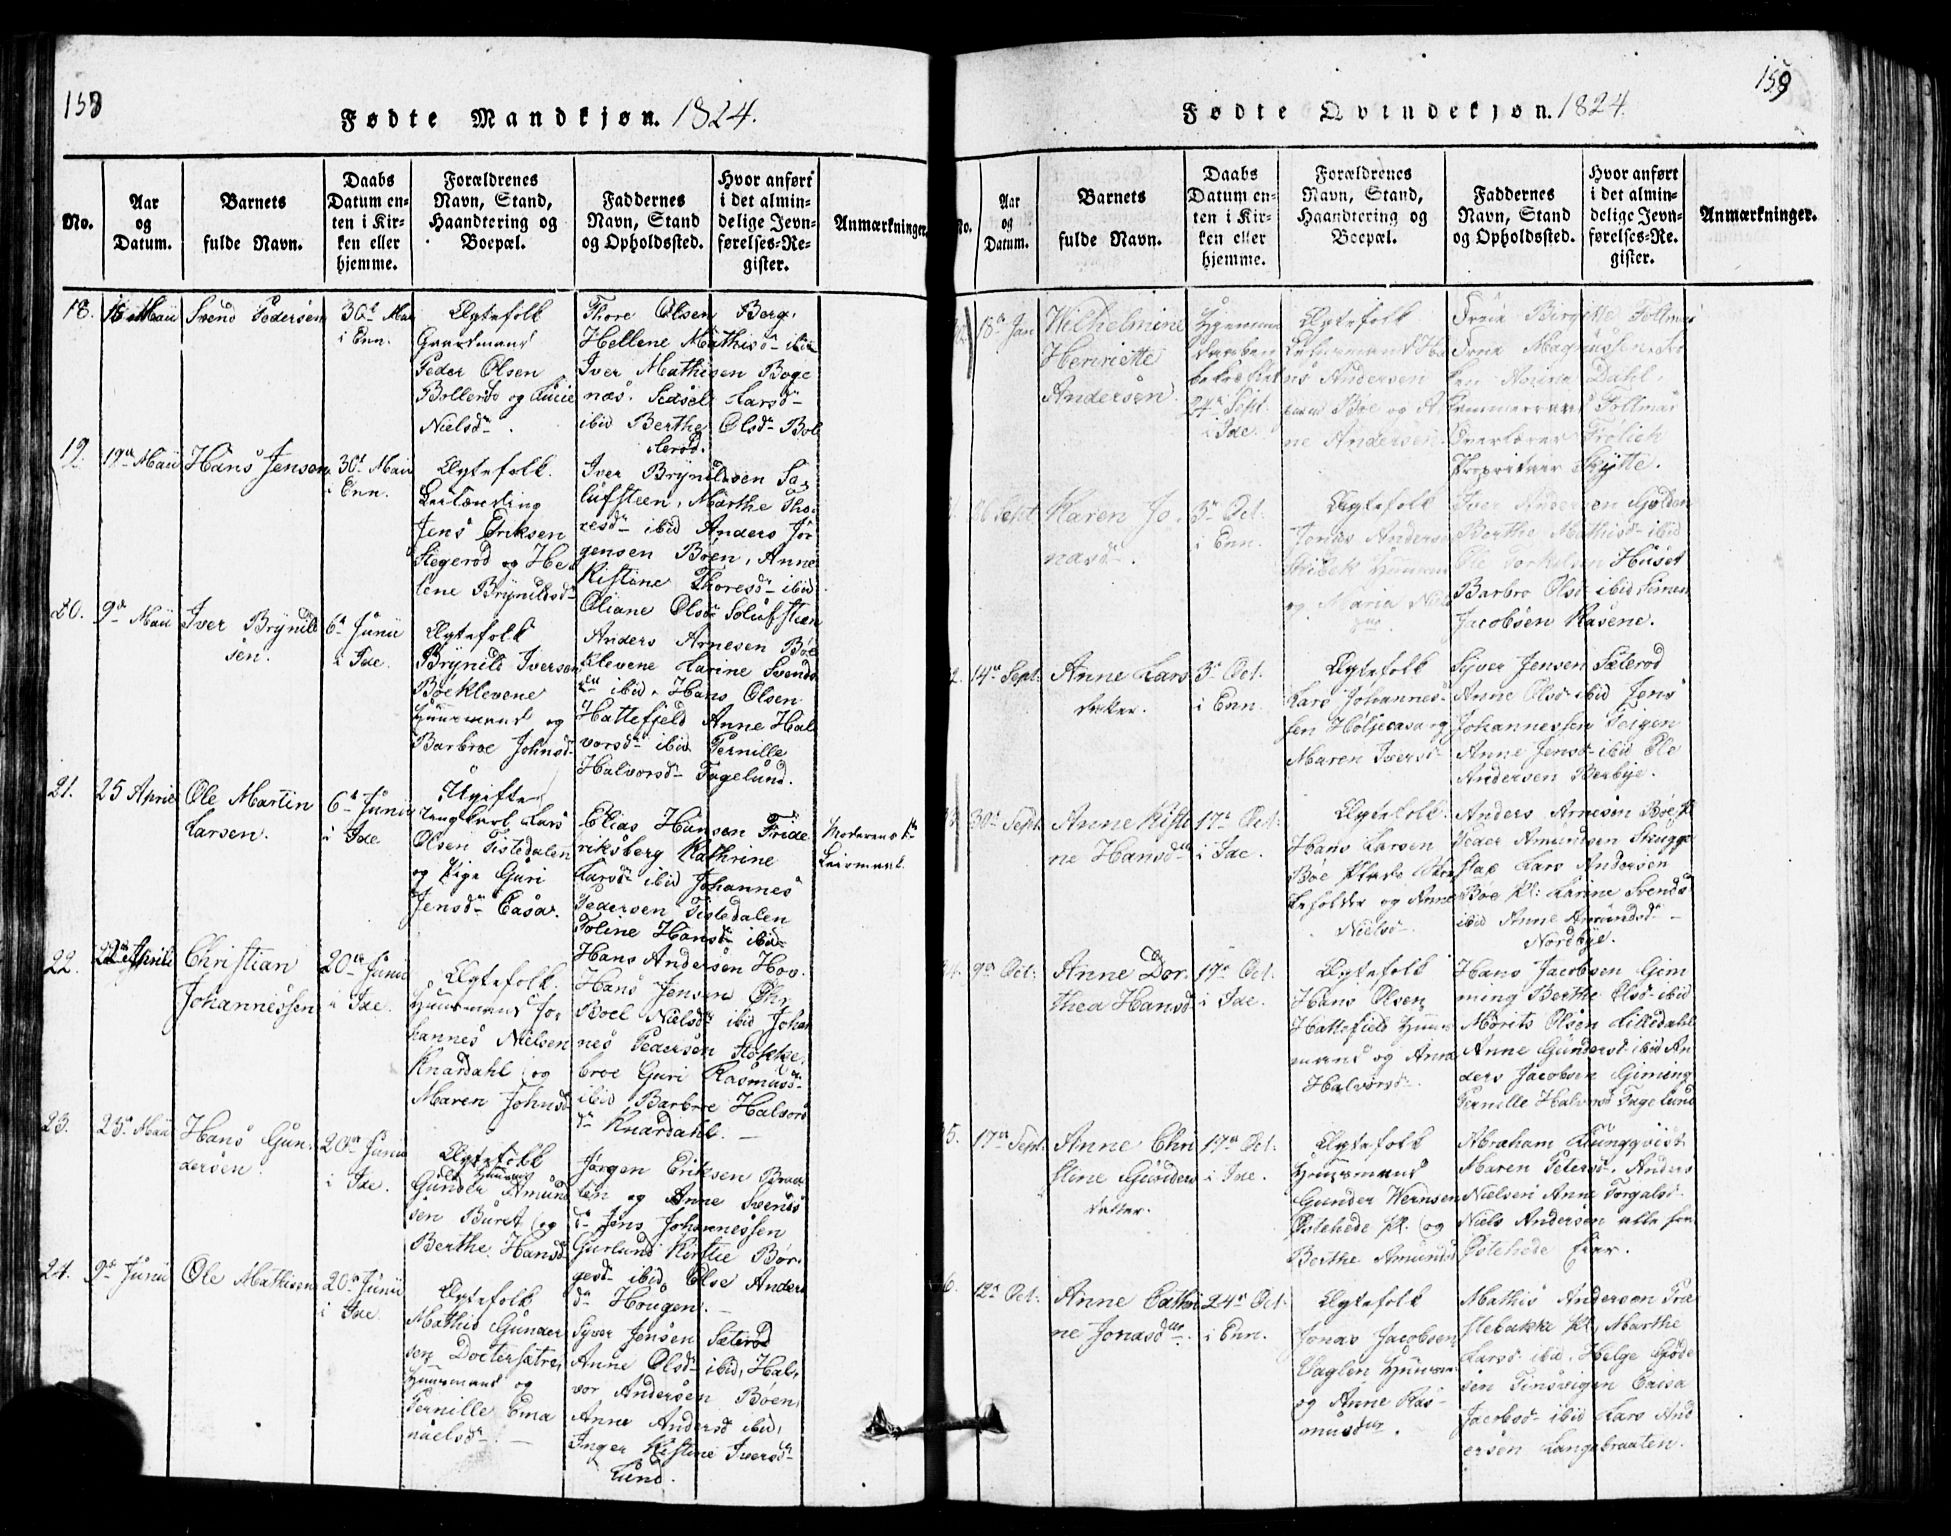 158
Fødte Mandkjøn. 1824.
No.
Aar og Datum.
Barnets fulde Navn.
Daabs Datum enten i Kirken eller hjemme.
Forældrenes Navn, Stand, Haandtering og Boepæl.
Faddernes Navn, Stand og Opholdssted.
Hvor anført i det almindelige Jevnførelses-Register.
Anmærkninger.
18.
16 Maii
Svend Pedersen
30te Maii
i Enn.
Ægtefolk
Gaardmand
Peder Olsen
Bollerød og Lucie
Nielsdr.
Thore Olsen Berg,
Hellene Mathisdr ibid
Iver Mathisen Boge
næs. Sidsel Larsdr
ibid Berthe Olsdr Bol
lerød.
19.
19de Maii
Hans Jensen
30te Maii
i Enn.
Ægtefolk
Jens Eriksen
Stegerød og He
lene Brynildsdr
Iver Brynildsen So,
lufsteen, Marthe Tho,
resdr ibid Anders Jør
gensen Boen, Anne
Kistine Thoresdr ibid
Oliane Olsdr Solufsteen
20.
9de Maii
Iver Brynild
sen.
6te Junii
i Ide.
Ægtefolk
Brynild Iversen
Bøeklevene
Huusmand og
Barbroe Johnsdr
Anders Arnesen Bøe
klevene Karine Svends
dr ibid. Hans Olsen
Hattefjeld Anne Hal
vorsdr ibid Pernille
Halvorsdr Fagelund.
21.
25 April
Ole Martin
Larsen.
6te Junii
i Ide
Ugifte
Ungkarl Lars
Olsen Tistedalen
og Pige Guri
Jensdr Casa.
Elias Hansen Fride
riksberg Kathrine
Larsdr ibid Johannes
Pedersen Tistedalen
Toline Hansdr ibid
Hans Andersen Hov.
Moderens 1te
Leiermaal.
22.
22de Aprili
Christian
Johannessen
20de Junii
i Ide.
Ægtefolk.
Huusmand Jo,
hannes Nielsen
Knardahl og
Maren Johnsdr
Hans Jensen
Boel Nielsdr ibid Johan
nes Pedersen Stokke,
broe Guri Rasmusdr
ibid Barbroe Halvors
dr Knardahl.
23.
25de Maii
Hans Gun,
dersen.
20de Junii
i Ide.
Ægtefolk
Huusmd
Gunder Amund
sen Buret og
Berthe Hansdr
Jørgen Eriksen Braa
ten og Anne Svends
dr Jens Johannessen
Gurlund Kirstie Bør,
gesdr ibid, Else Anders
dr Hougen.
24.
9de Junii
Ole Mathisen
20de Junii
i Ide
Ægtefolk
Mathis Gunder
sen Doctersætre,
Huusmand og
Pernille Ema
nuelsdr.
Syver Jensen Sæterød
Anne Olsdr ibid, Hal,
vor Andersen Bøen,
Anne Andersd ibid,
Inger Kistine Iversdr
Lund.
159
Fødte Qvindekjøn. 1824.
No.
Aar og Datum.
Barnets fulde Navn.
Daabs Datum enten i Kirken eller hjemme.
Forældrenes Navn, Stand, Haandtering og Boepæl.
Faddernes Navn, Stand og Opholdssted.
Hvor anført i det almindelige Jevnførelses-Re. gister.
Anmærkninger.
18de Jan
Wilhelmine
Henriette
Andersen.
Hjemme
24de Sept.
i Ide.
Ægtefolk
Andersen
Bøe og
ne Andersen
Frue Birgitte Tollmar
Frue Magnussen, Frø
ken Maria Dahl,
Kammerraad Tollmar
Overlærer Frolich
Proprietair Skytte.
26 Sept.
Karen Jo,
nasdr.
3de Oct.
i Enn.
Ægtefolk
Jonas Andersen
og Maria Niels
Iver Andersen
Berthe Mathisdr ibid
Ole Torkelsen Huset
Barbro Olsdr ibid Simen
Jacobsen Kasene.
14de Sept.
Anne Lars
datter.
3de Oct.
i Enn.
Ægtefolk
Lars Johannes,
sen Høljecasa og
Maren Iversdr
Syver Jensen Sæterød
Anne Olsdr ibid Jens
Johannessen Teigen
Anne Jensdr ibid Ole
Andersen Berbye.
30te Sept.
Anne Kisti
ne Hansdr
17de Oct.
i Ide.
Ægtefolk.
Hans Larsen
Bøe
og Anne
Nielsdr
Anders Arnesen Bøe Pl
Peder Amundsen Skugge
Lars Andersen
Bøe Pl: Karine Svendsdr
ibid Anne Amundsdr
Nordbye.
9de Oct.
Anne Dor,
thea Hansdr
17de Oct.
i Ide.
Ægtefolk
Hans Olsen
Hattefield Huus,
mand og Anne
Halvorsdr.
Hans Jacobsen Gim
ming Berthe Olsdr ibid
Morits Olsen Lilledahl
Anne Gundersdr ibid An
ders Jacobsen Gimming
Pernille Halvorsd Fagelund
17de Sept.
Anne Chri
stine Gunders
datter.
17de Oct.
i Ide.
Ægtefolk
Huusmand
Gunder Wernsen
Østehede Pl. og
Berthe Amundsd
Abraham Liungqvist
Maren Petersdr. Anders
Nielsen Anne Torgalsdr.
Niels Andersen alle fra
Østehede Eier.
12te Oct.
Anne Cathri
ne Jonasdr.
24de Oct.
i Enn.
Ægtefolk
Jonas Jacobsen
Vaglen Huusm
og Anne Ras
musdtr.
Mathis Andersen Træ
stebakke Pl., Marthe
Larsdr ibid. Helge Gude
sen Tinsvigen Caisa
Jacobsdr ibid Lars And
ersen Langebraaten.